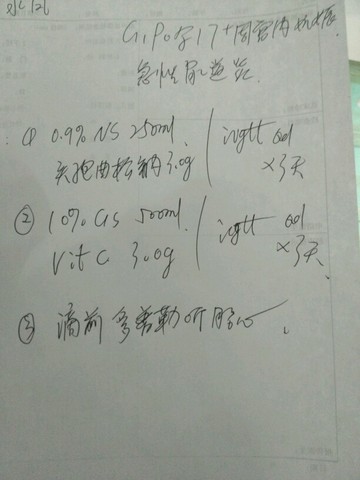 G1P0孕17+周宫内妊娠
急性尿道炎
① 0.9% NS 250ml
头孢曲松钠 3.0g
ivgtt qd
×3天
② 10% GS 500ml
Vit C 3.0g
ivgtt qd
×3天
③ 滴前
听胎心